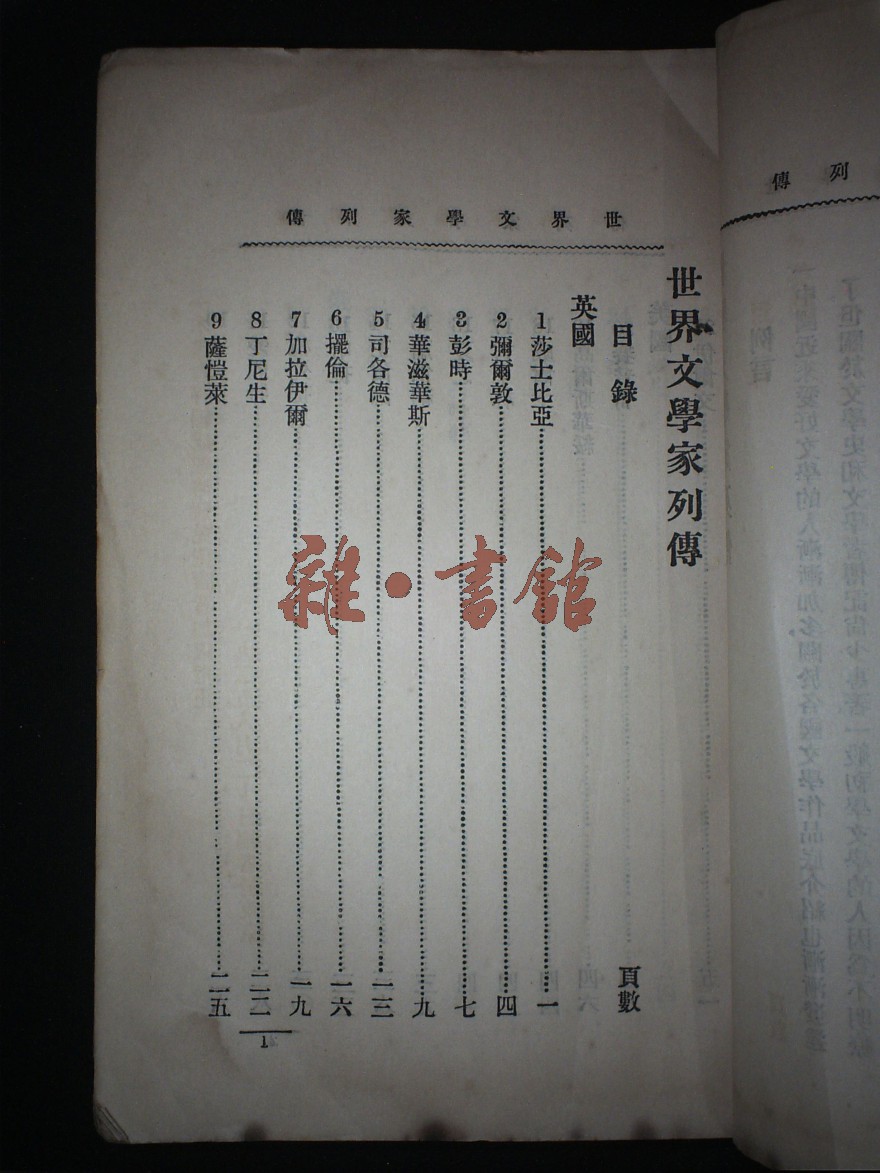 世界文學家列傳
世界文學家列傳
目錄 頁數
英國
1 莎士比亞 一
2 彌爾敦 四
3 彭時 七
4 華滋華斯 九
5 司各德 一三
6 擺倫 一六
7 加拉伊爾 一九
8 丁尼生 二二
9 薩愷萊 二五
1
雜·書館
列傳